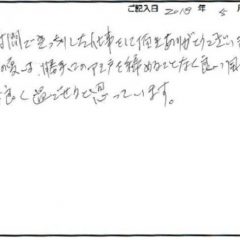 ご記入日 2018 年 5 月
間で きっちりした仕事をして頂きありがとうござい
の夏は、勝手口のアミ戸を締めることなく良い風
良く過ごせると思っています。